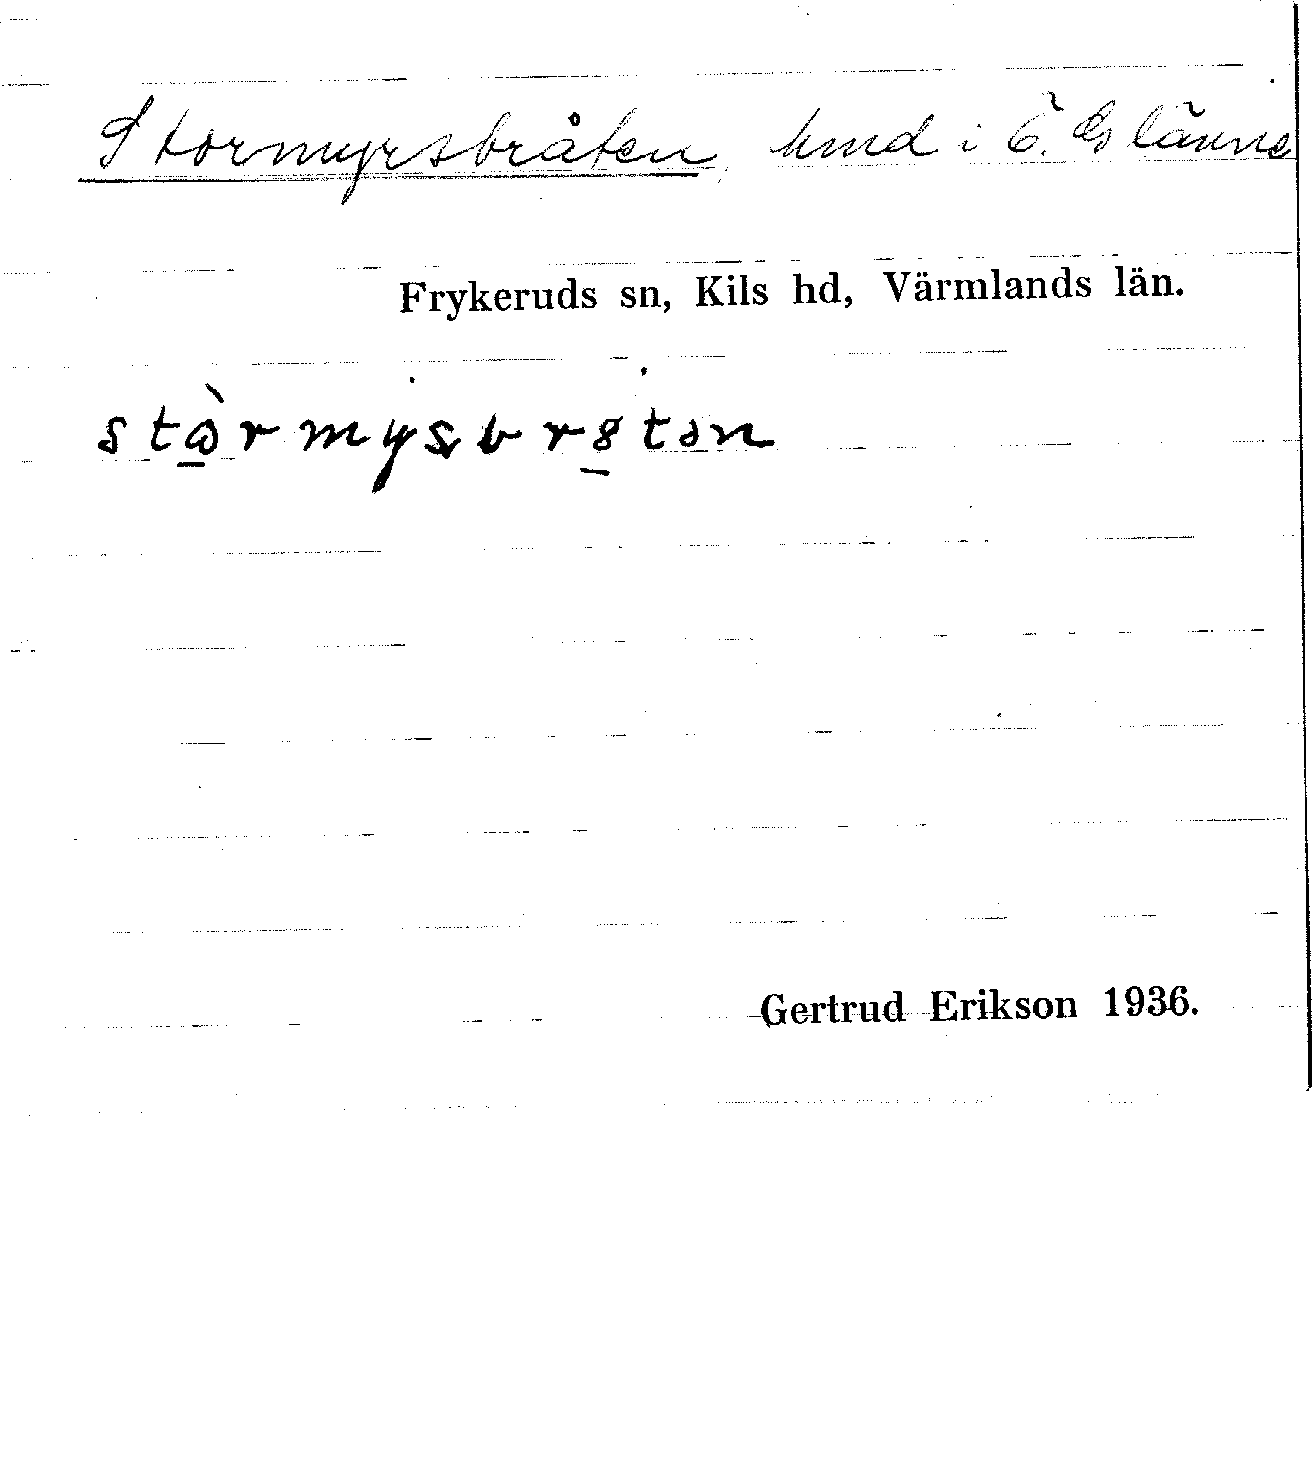 Stormyrsbråten, hmd i Ö. Glänne
Frykeruds sn, Kils hd, Värmlands län.
Gertrud Erikson 1936.